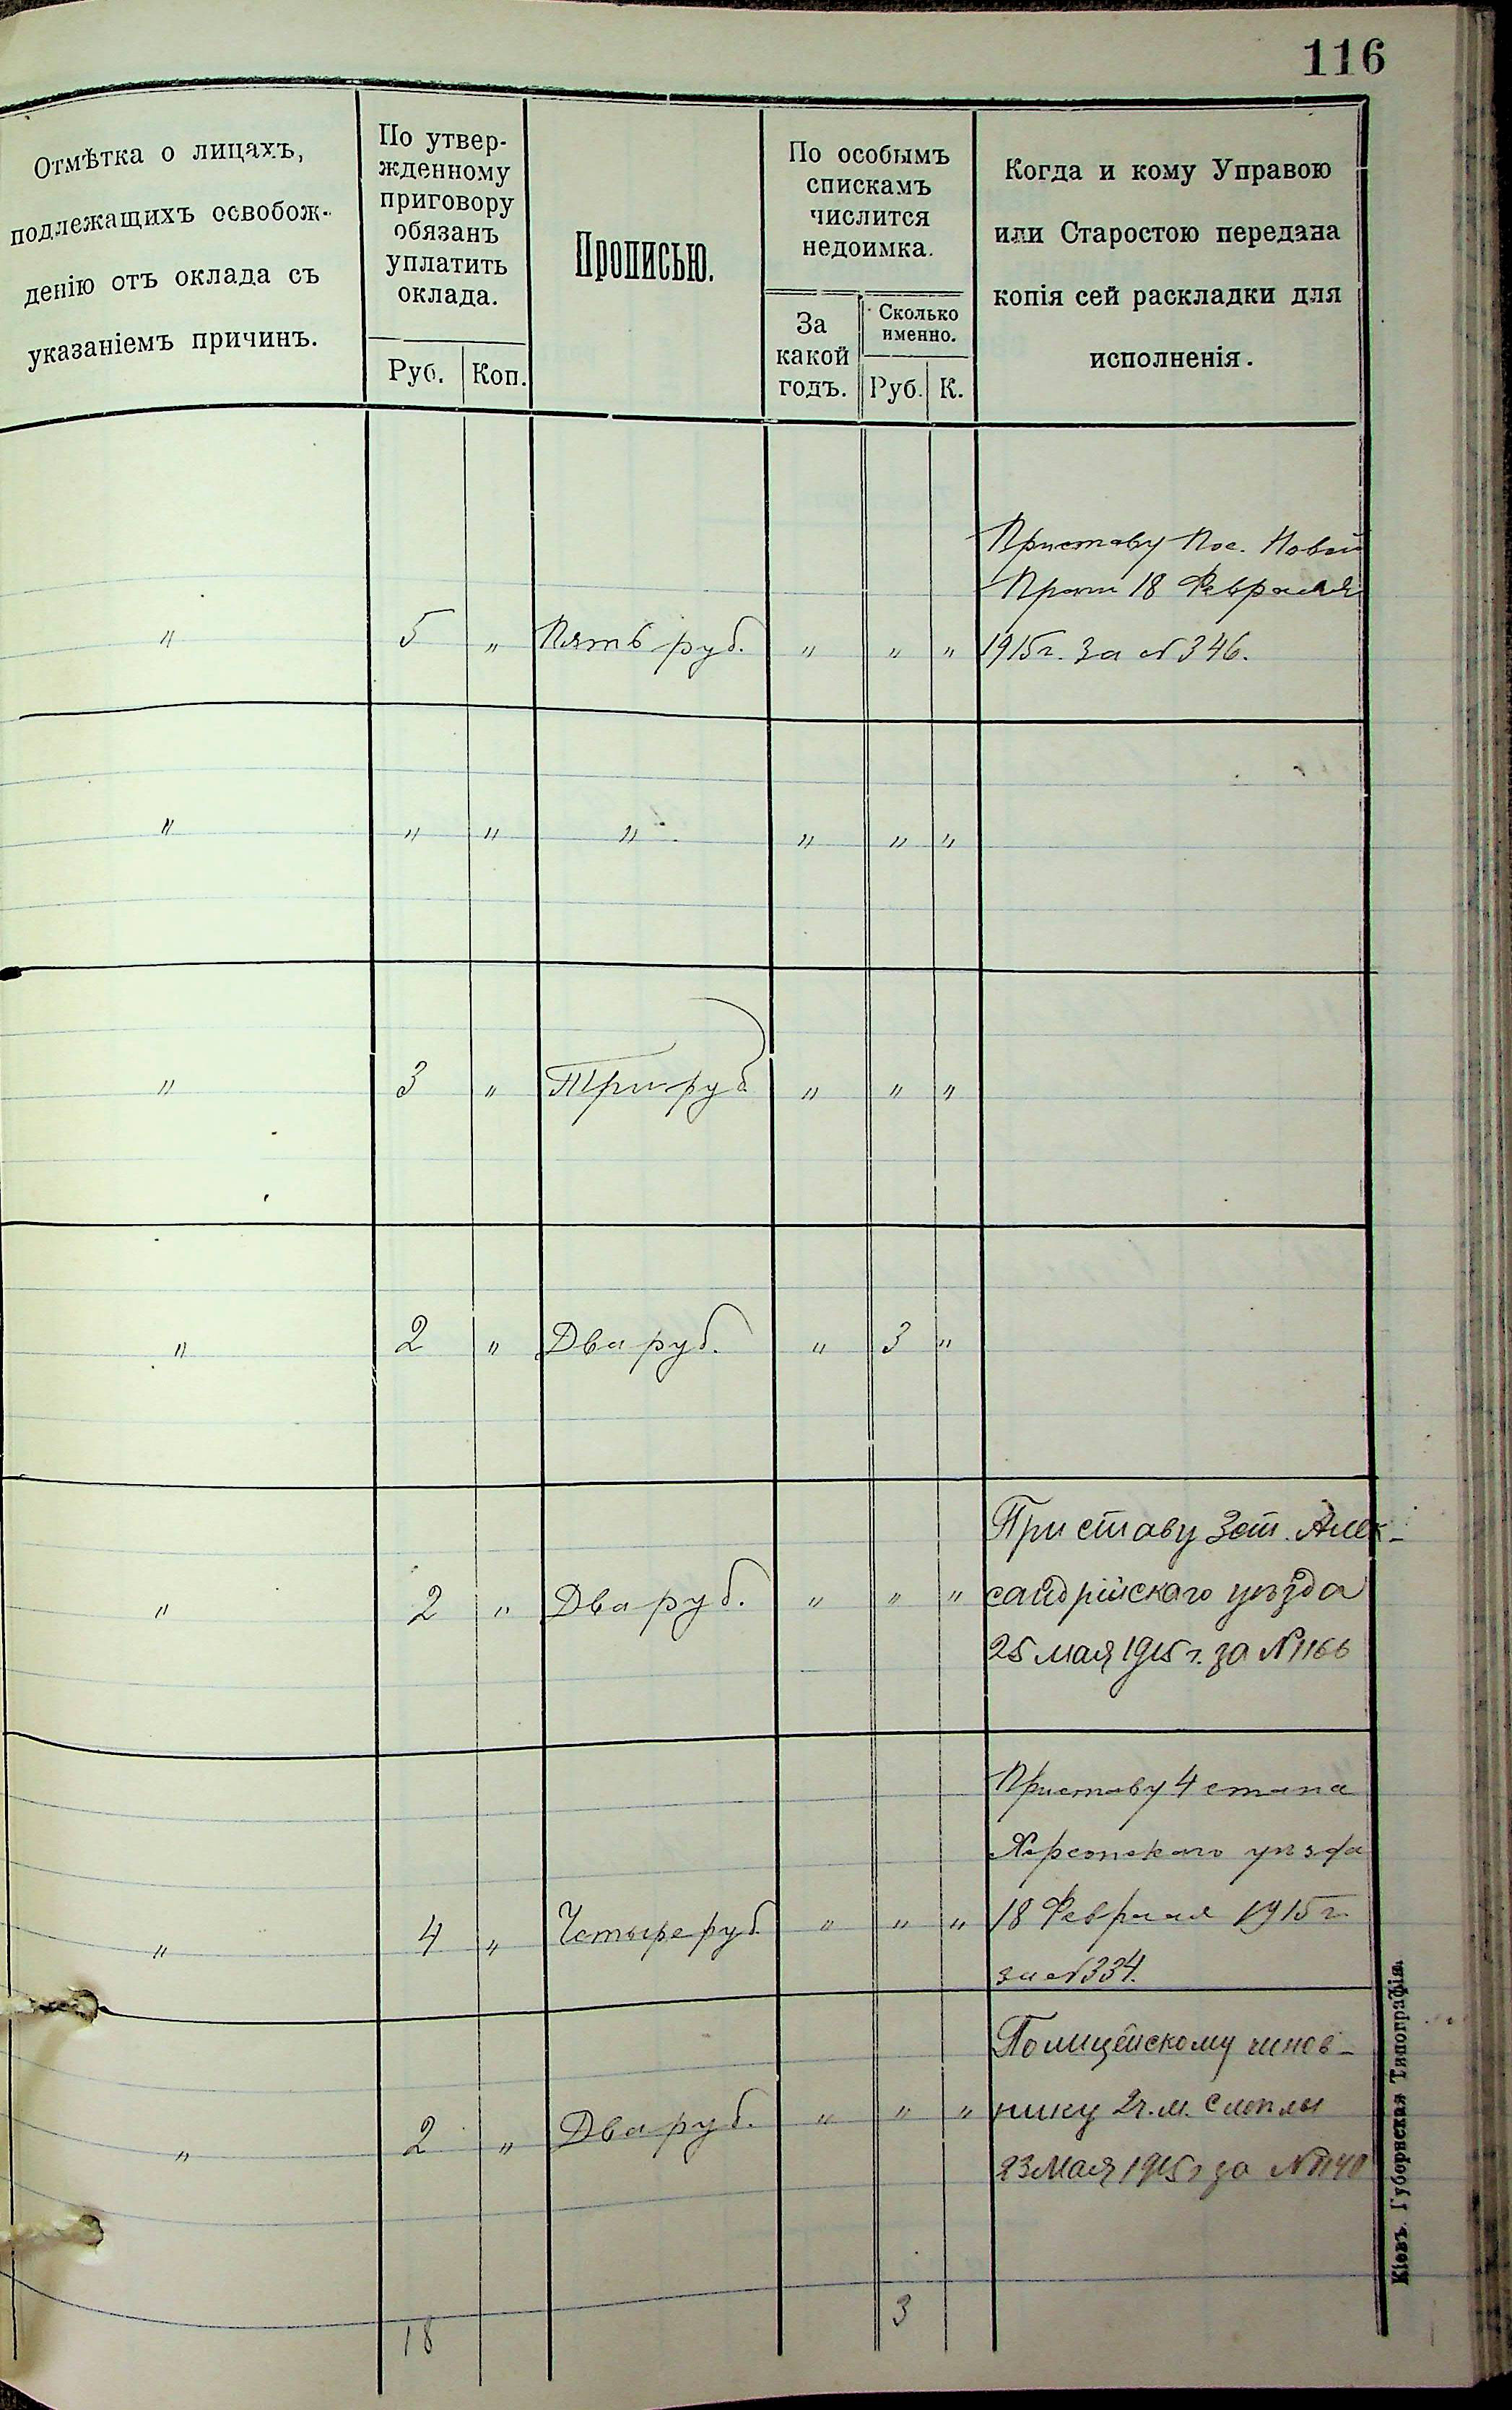 116
Отмѣтка о лицахъ,
подлежащихъ освобож-
денію отъ оклада съ
указаніемъ причинъ.
По утвер-
жденному
приговору
обязанъ
уплатить
оклада.
Руб. Коп.
Прописью.
По особымъ
спискамъ
числится
недоимка.
За
какой
годъ.
Сколько
именно.
Руб. К.
Когда и кому Управою
или Старостою передана
копія сей раскладки для
исполненія.
Приставу Пос. Новой
Праги 18 Февраля
" 5 " Пять руб. " " " 1915 г. за № 346.
" " " " " " "
" 3 " Три руб " " "
" 2 " Два руб. " 3 "
Приставу 3 ст. Алек-
" 2 " Два руб. " " " сандрійскаго уѣзда
25 мая 1915 г. за № 1166
Приставу 4 стана
Херсонскаго уѣзда
" 4 " Четыре руб. " " " 18 Февраля 1915 г.
за № 334.
Полицейскому чинов-
" 2 " Два руб. " " " нику 2 ч. м. Смѣлы
23 Мая 1915 г за № 1140
18 3
Кіевъ. Губернская Типографія.